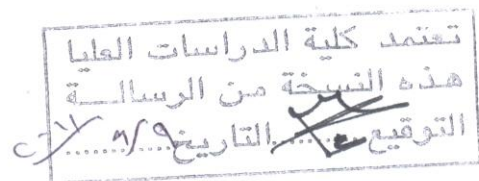 تعتمد كلية الدراسات العليا
هذه النسخة من الرسالــة
التوقيع......التاريخ......